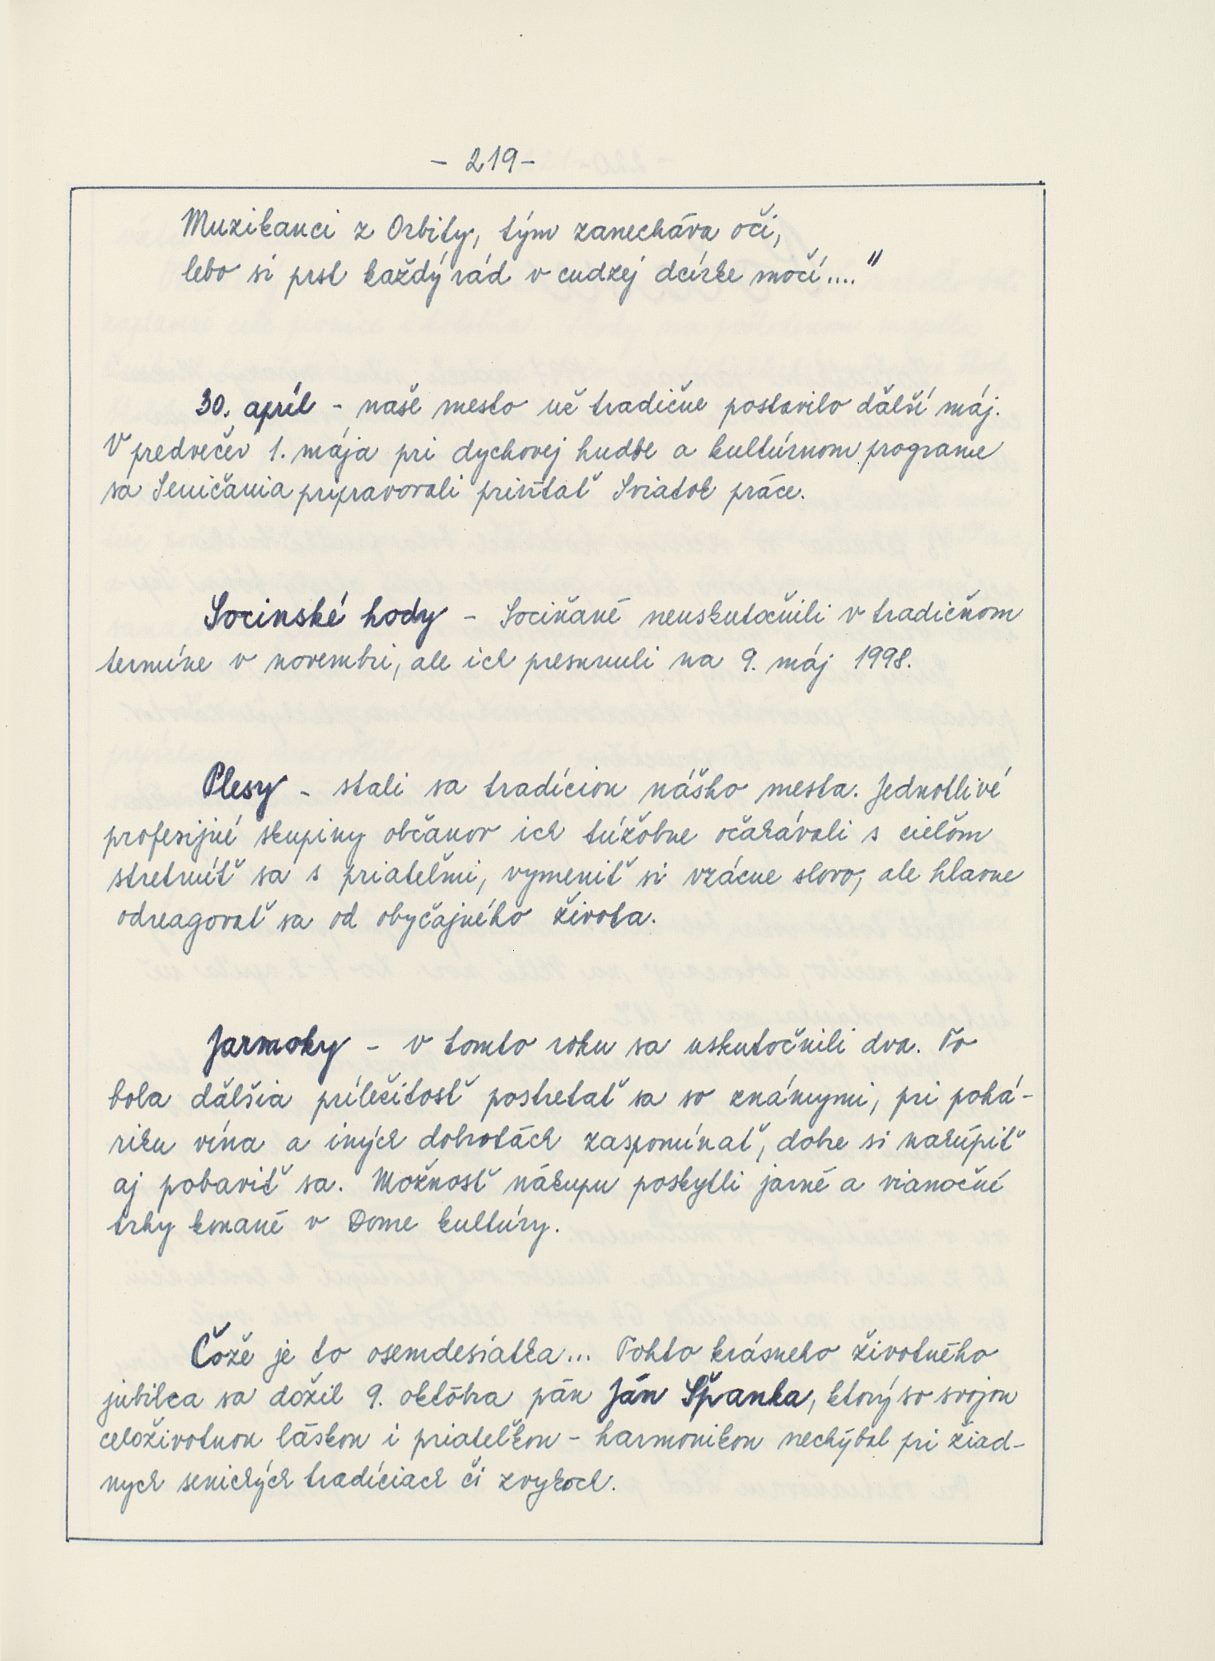 - 219 -
Muzikanci z Orbity, tým zanecháva oči,
lebo si prst každý rád v cudzej dcírke močí...."
30. apríl - naše mesto už tradične postavilo ďalší máj.
V predvečer 1. mája pri dychovej hudbe a kultúrnom programe
sa Seničania pripravovali privítať Sviatok práce.
Sotinské hody - Sotiňané neuskutočnili v tradičnom
termíne v novembri, ale ich presunuli na 9. máj 1998.
Plesy - stali sa tradíciou nášho mesta. Jednotlivé
profesijné skupiny občanov ich túžobne očakávali s cieľom
stretnúť sa s priateľmi, vymeniť si vzácne slovo, ale hlavne
odreagovať sa od obyčajného života.
Jarmoky - v tomto roku sa uskutočnili dva. To
bola ďalšia príležitosť postretať sa so známymi, pri pohá-
riku vína a iných dobrotách zaspomínať, dobre si nakúpiť
aj pobaviť sa. Možnosť nákupu poskytli jarné a vianočné
trhy konané v Dome kultúry.
Čože je to osemdesiatka... Tohto krásneho životného
jubilea sa dožil 9. októbra pán Ján Španka, ktorý so svojou
celoživotnou láskou i priateľkou - harmonikou nechýbal pri žiad-
nych senických tradíciach či zvykoch.